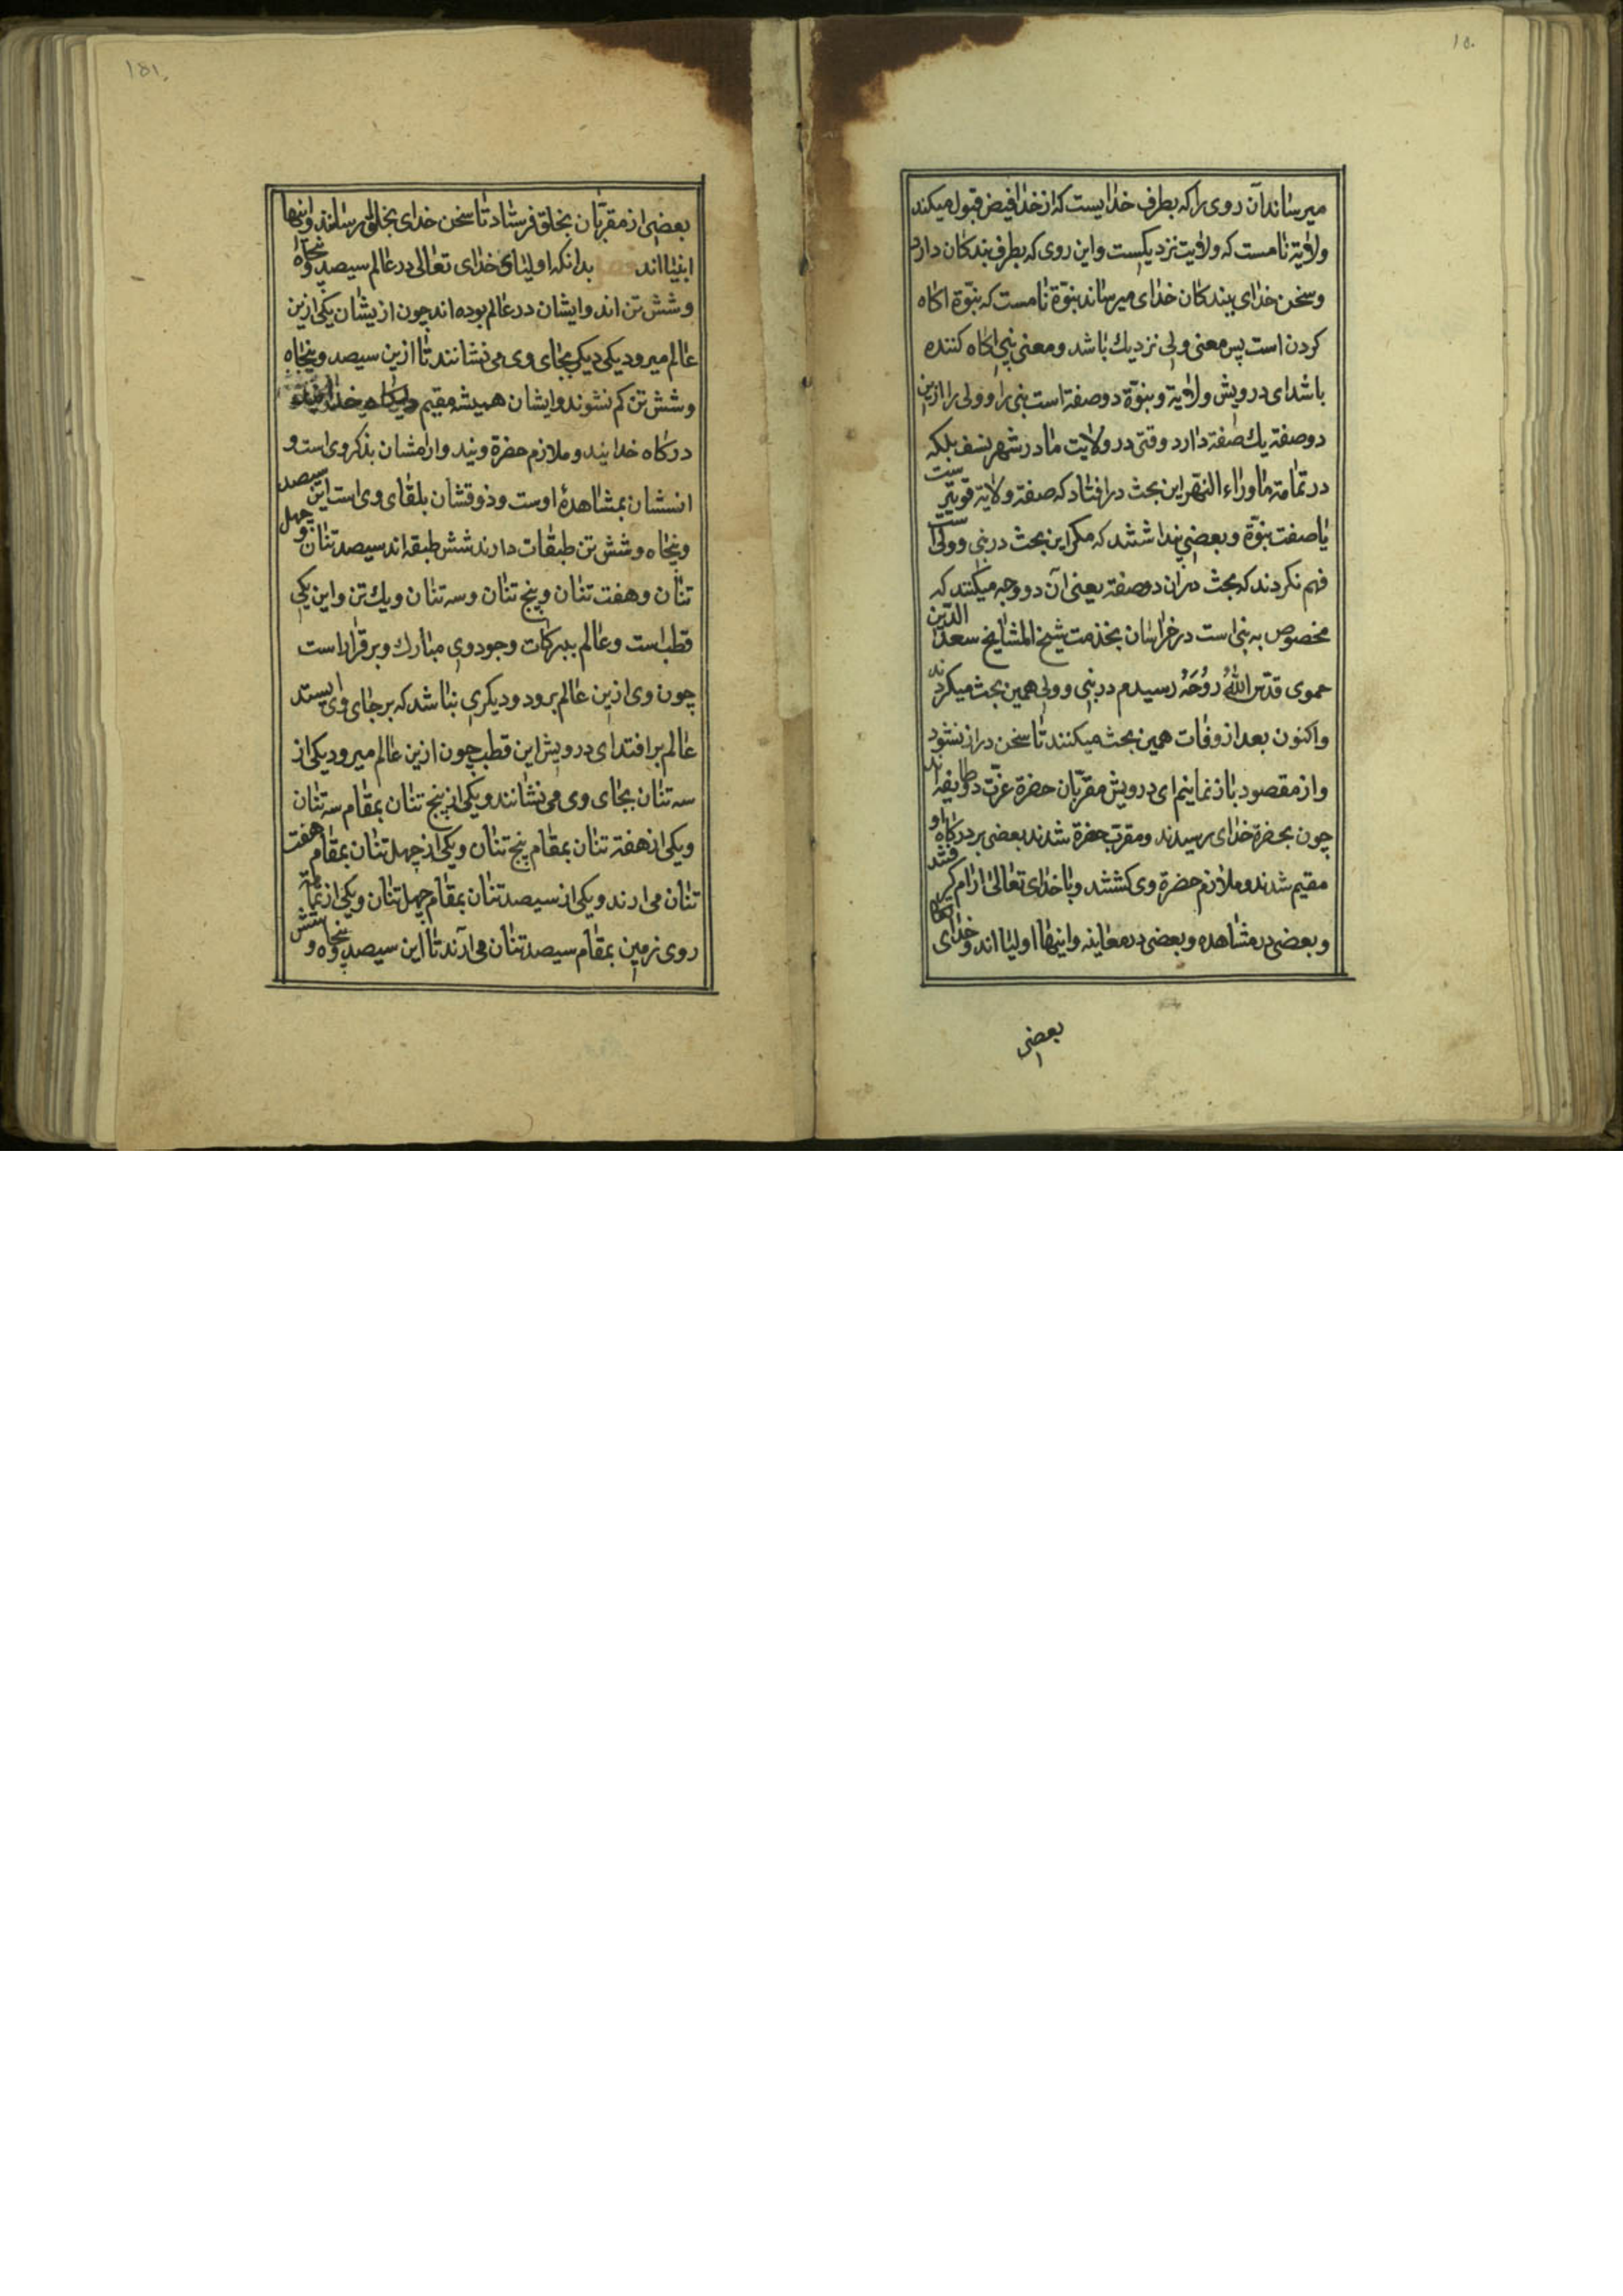 ۱۵۰
میرساند آن روی را که بطرف خدایست که از خدا فیض قبول میکند
ولایة نامست که ولایت نزدیکیست و این روی که بطرف بندکان دارد
و سخن خدای ببندکان خدای میرساند نبوّة نامست که نبوّة اکاه
کردن است پس معنی ولی نزدیك باشد و معنی نبی اکاه کننده
باشد ای درویش ولایة و نبوّة دو صفة است نبی را و ولی را ازین
دو صفة یك صفة دارد وقتی در ولایت ما در شهر نسف بلکه
در تمامة ماوراء النهر این بحث در افتاد که صفة ولایة قویترست
یا صفت نبوّة و بعضی پنداشتند که مکر این بحث در نبی و ولی است
فهم نکردند که بحث دران دو صفة یعنی آن دو وجه میکنند که
مخصوص به نبی است در خراسان بخذمت شیخ المشایخ سعد الدّین
حموی قدّس اللّٰهُ رُوُحَهُ رسیدم در نبی و ولی همین بحث میکردند
و اکنون بعد از وفات همین بحث میکنند تا سخن دراز نشود
و از مقصود باز نمانیم ای درویش مقرّبان حضرة عزّت دو طایفه اند
چون بحضرة خدای رسیدند و مقرب حضرة شدند بعضی بر درکاه او
مقیم شدند و ملازم حضرة وی کشتند و با خدای تعالی ارام کرفتند
و بعضی در مشاهده و بعضی در معاینه و اینها اولیا اند و خدای
بعضی
۱۵۱
بعضی از مقربّان بخلق فرستاد تا سخن خدای بخلق رسانند و اینها
انبیا اند بدانکه اولیای خدای تعالی در عالم سیصد و پنجاه
و شش تن اند و ایشان در عالم بوده اند چون ازیشان یکی ازین
عالم میرود یکی دیکر بجای وی می نشانند تا ازین سیصد و پنجاه
و شش تن کم نشوند و ایشان همیشه مقیم
درکاه خدایند و ملازم حضرة ویند و ارامشان بذکر وی است و
انسشان بمشاهدهٔ اوست و ذوقشان بلقای وی است این سیصد
و پنجاه و شش تن طبقات دارند شش طبقه اند سیصد تنان و چهل
تنان و هفت تنان و پنج تنان و سه تنان و یك تن و این یکی
قطب است و عالم ببرکات وجود وی مبارك و برقرار است
چون وی ازین عالم برود و دیکری نباشد که بر جای وی ایستد
عالم بر افتد ای درویش این قطب چون ازین عالم میرود یکی از
سه تنان بجای وی می نشانند و یکی از پنج تنان بمقام سه تنان
و یکی از هفته تنان بمقام پنج تنان و یکی از چهل تنان بمقام هفت
تنان می ارند و یکی از سیصد تنان بمقام چهل تنان و یکی از تمامة
روی زمین بمقام سیصد تنان می آرند تا این سیصد و پنجاه و شش